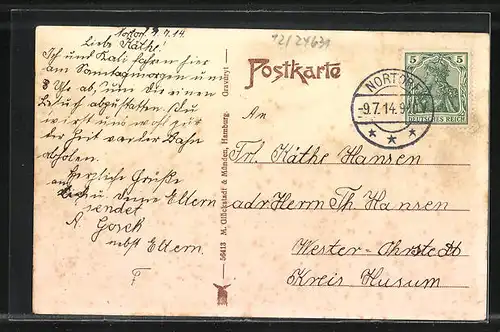 Nortorf 9.7.14
Liebe Käthe!
Ich und Kali fahren hier
am Sonntagmorgen um
8 Uhr ab, um Dir einen
Besuch abzustatten. Du
wirst uns wohl zur
Zeit von der Bahn
abholen.
Herzliche Grüße
an Dich u. deine Eltern
sendet
A.
nebst Eltern.
Postkarte
An
Frl. Käthe Hansen
adr Herrn Th. Hansen
Wester-Ohrstedt
Kreis Husum
NORTORF
-9.7.14.9
5 5
DEUTSCHES REICH
56413 M. Glückstadt & Münden, Hamburg. Gravenyt